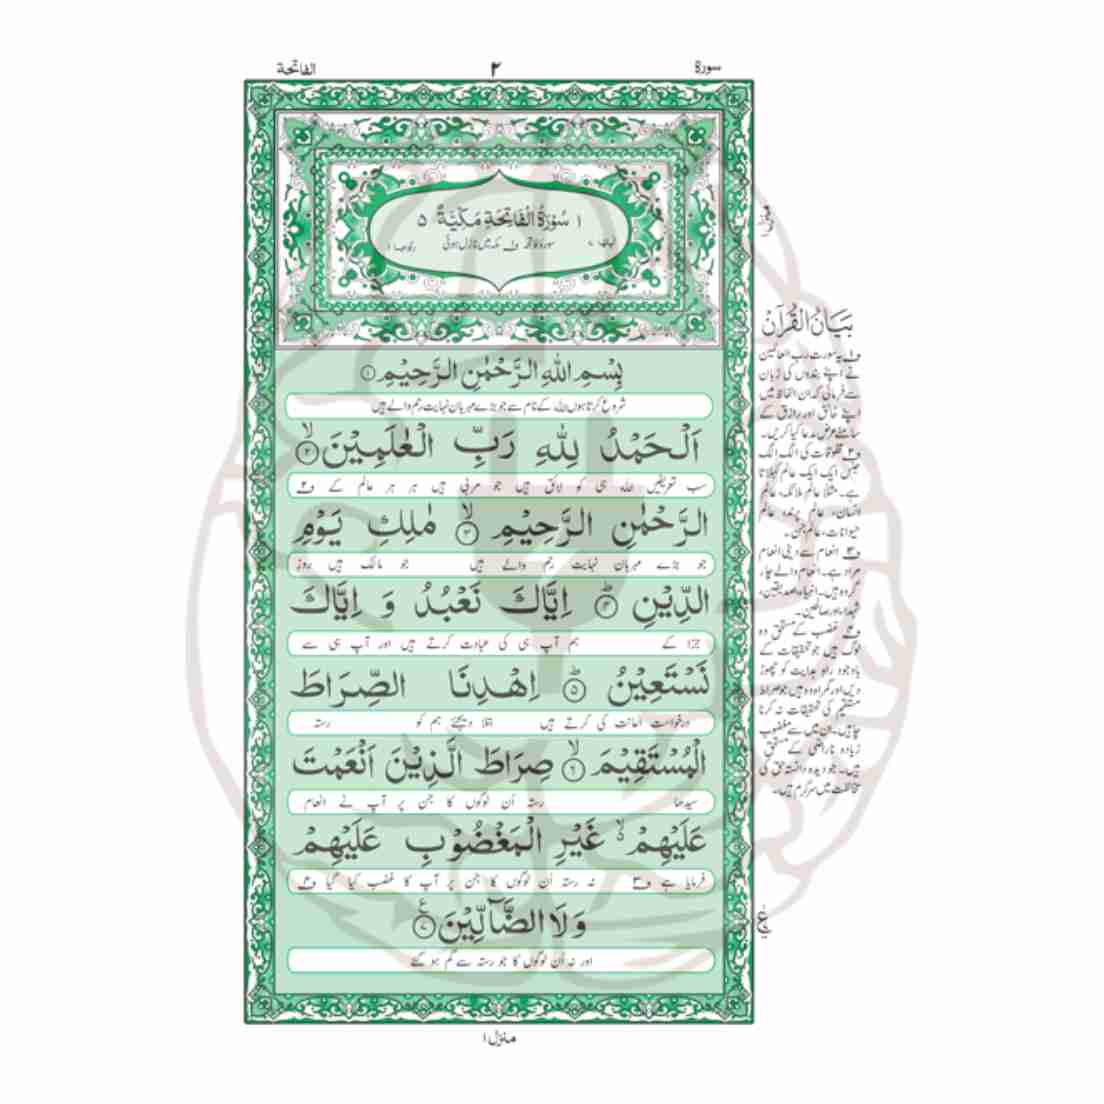 سورۃ ۲ الفاتحۃ
۱ سُوْرَةُ الْفَاتِحَةِ مَكِّيَّةٌ ۵
سورۂ فاتحہ مکہ میں نازل ہوئی
بِسْمِ اللهِ الرَّحْمٰنِ الرَّحِيْمِ ۱
شروع کرتا ہوں اللہ کے نام سے جو بڑے مہربان نہایت رحم والے ہیں
اَلْحَمْدُ لِلّٰهِ رَبِّ الْعٰلَمِيْنَ ۙ۲
سب تعریفیں اللہ ہی کو لائق ہیں جو مربی ہیں ہر ہر عالم کے ف۲
الرَّحْمٰنِ الرَّحِيْمِ ۙ۳ مٰلِكِ يَوْمِ
جو بڑے مہربان نہایت رحم والے ہیں جو مالک ہیں روز
الدِّيْنِ ؕ۴ اِيَّاكَ نَعْبُدُ وَ اِيَّاكَ
جزا کے ہم آپ ہی کی عبادت کرتے ہیں اور آپ ہی سے
نَسْتَعِيْنُ ؕ۵ اِهْدِنَا الصِّرَاطَ
درخواست اعانت کی کرتے ہیں بتلا دیجئے ہم کو رستہ
الْمُسْتَقِيْمَ ۙ۶ صِرَاطَ الَّذِيْنَ اَنْعَمْتَ
سیدھا رستہ اُن لوگوں کا جن پر آپ نے انعام
عَلَيْهِمْ ۙ غَيْرِ الْمَغْضُوْبِ عَلَيْهِمْ
فرمایا ہے ف۳ نہ رستہ اُن لوگوں کا جن پر آپ کا غضب کیا گیا ف۴
وَلَا الضَّآلِّيْنَ ۷
اور نہ اُن لوگوں کا جو رستہ سے گم ہو گئے
بَيَانُ الْقُرْآن
ف۱ یہ سورت رب العالمین
نے اپنے بندوں کی زبان
سے فرمائی کہ ان الفاظ میں
اپنے خالق اور رازق کے
سامنے عرض مدعا کیا کریں۔
ف۲ مخلوقات کی الگ الگ
جنس ایک ایک عالم کہلاتا
ہے۔ مثلاً عالم ملائکہ، عالم
انسان، عالم پرندہ، عالم
حیوانات، عالم جن۔
ف۳ انعام سے دینی انعام
مراد ہے۔ انعام والے چار
گروہ ہیں۔ انبیاء، صدیقین،
شہداء اور صالحین۔
ف۴ غضب کے مستحق وہ
لوگ ہیں جو تحقیقات کے
باوجود راہ ہدایت کو چھوڑ
دیں اور گمراہ وہ ہیں جو صراط
مستقیم کی تحقیقات نہ کرنا
چاہیں۔ جن میں سے مغضوب
زیادہ ناراضی کے مستحق
ہیں۔ جو دیدہ دانستہ حق کی
مخالفت میں سرگرم ہیں۔
منزل ۱